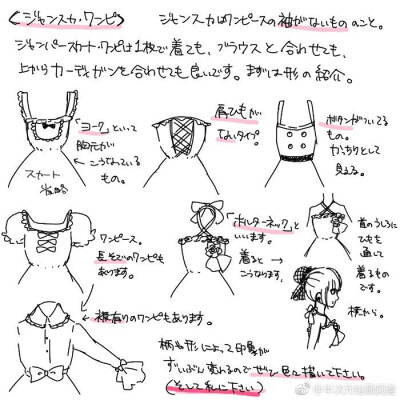 〈ジャンスカ・ワンピ〉
ジャンスカはワンピースの袖がないもののこと。
ジャンパースカート・ワンピは1枚で着ても、ブラウスと合わせても、
上からカーディガンを合わせても良いです。まずは形の紹介。
「ヨーク」といって
胸元が
こうなっている
もの。
スカート
省略
肩ひもが
ないタイプ。
ボタンがついてる
もの。
かっちりとして
見える。
ワンピース。
長そでのワンピも
あります。
「ホルターネック」と
いいます。
着ると→
こうなります。
首のうしろに
ひもを
通して
着るもの
です。
横から。
襟有りのワンピもあります。
柄や形によって印象が
ずいぶん変わるのでぜひ色々描いて下さい。
(そして私に下さい)